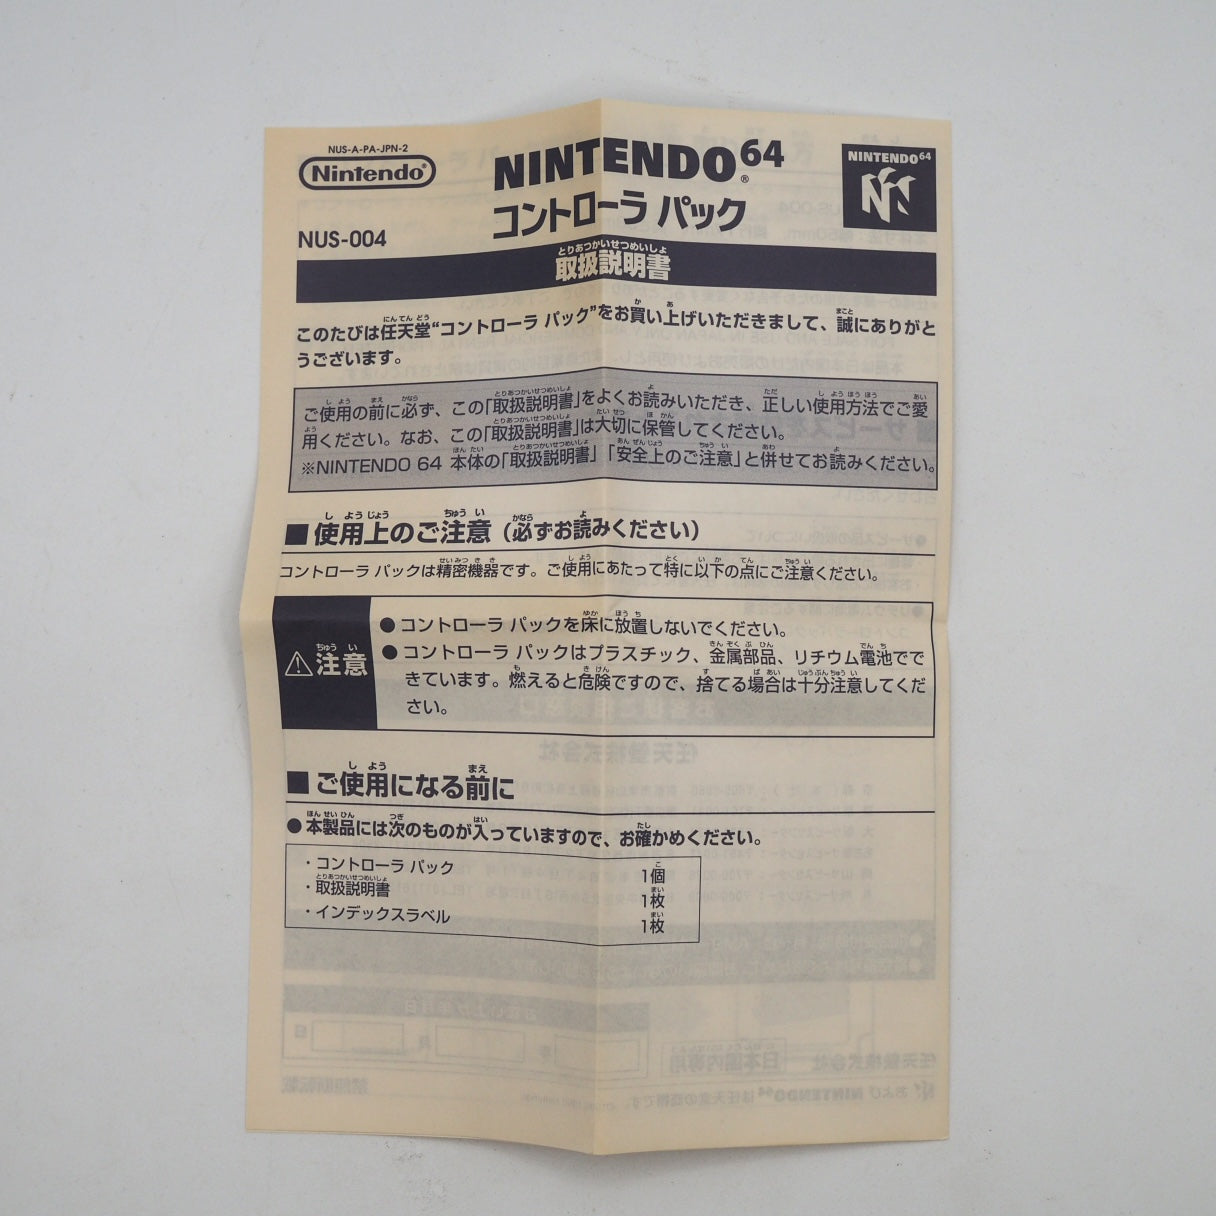 NUS-A-PA-JPN-2
Nintendo®
NUS-004
NINTENDO64®
コントローラ パック
NINTENDO64
とりあつかいせつめいしょ
取扱説明書
このたびは任天堂“コントローラ パック”をお買い上げいただきまして、誠にありがと
うございます。
ご使用の前に必ず、この「取扱説明書」をよくお読みいただき、正しい使用方法でご愛
用ください。なお、この「取扱説明書」は大切に保管してください。
※NINTENDO 64 本体の「取扱説明書」「安全上のご注意」と併せてお読みください。
■使用上のご注意（必ずお読みください）
コントローラ パックは精密機器です。ご使用にあたって特に以下の点にご注意ください。
⚠注意
●コントローラ パックを床に放置しないでください。
●コントローラ パックはプラスチック、金属部品、リチウム電池でで
きています。燃えると危険ですので、捨てる場合は十分注意してくだ
さい。
■ご使用になる前に
●本製品には次のものが入っていますので、お確かめください。
・コントローラ パック 1個
・取扱説明書 1枚
・インデックスラベル 1枚